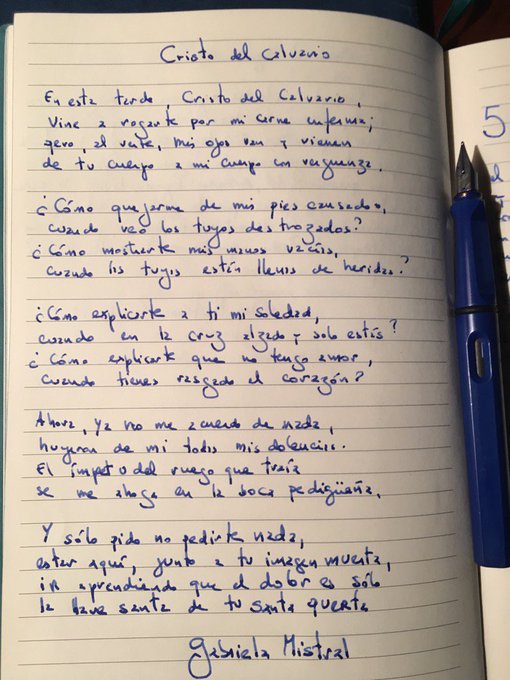 Cristo del Calvario
En esta tarde, Cristo del Calvario,
vine a rogarte por mi carne enferma;
pero, al verte, mis ojos van y vienen
de tu cuerpo a mi cuerpo con vergüenza.
¿Cómo quejarme de mis pies cansados,
cuando veo los tuyos destrozados?
¿Cómo mostrarte mis manos vacías,
cuando las tuyas están llenas de heridas?
¿Cómo explicarte a ti mi soledad,
cuando en la cruz alzado y solo estás?
¿Cómo explicarte que no tengo amor,
cuando tienes rasgado el corazón?
Ahora, ya no me acuerdo de nada,
huyeron de mi todas mis dolencias.
El ímpetu del ruego que traía
se me ahoga en la boca pedigüeña.
Y sólo pido no pedirte nada,
estar aquí, junto a tu imagen muerta,
ir aprendiendo que el dolor es sólo
la llave santa de tu santa puerta
Gabriela Mistral
5